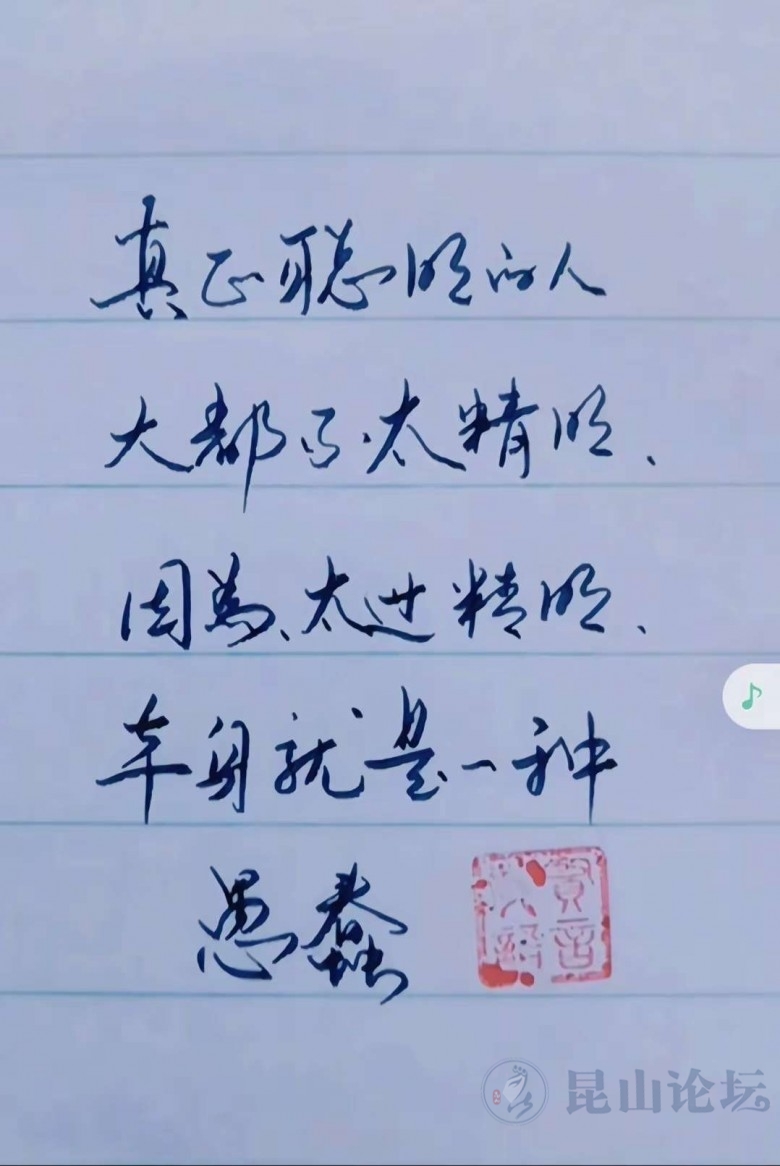 真正聪明的人
大都不太精明、
因為、太过精明、
本身就是一种
愚蠢
昆山论坛